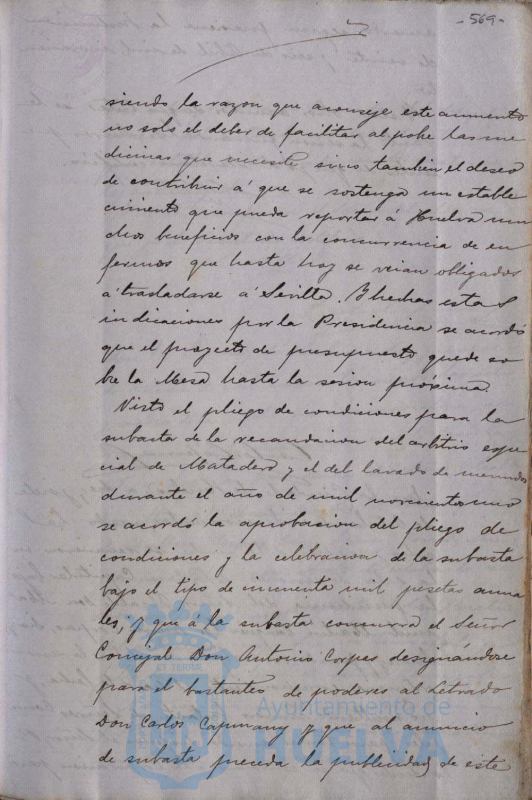 -569-
siendo la razon que aconseje este aumento
no solo el deber de facilitar al pobre las me
dicinas que necesite sino tambien el deseo
de contribuir á que se sostenga un estable
cimiento que pueda reportar á Huelva mu
chos beneficios con la concurrencia de en
fermos que hasta hoy se veian obligados
á trasladarse á Sevilla. Y hechas estas
indicaciones por la Presidencia se acordó
que el proyecto de presupuesto quede so
bre la Mesa hasta la sesion próxima.
Visto el pliego de condiciones para la
subasta de la recaudacion del arbitrio espe
cial de Matadero y el del lavado de menudos
durante el año de mil novecientos uno
se acordó la aprobacion del pliego de
condiciones y la celebracion de la subasta
bajo el tipo de cincuenta mil pesetas anua
les, y que á la subasta concurra el Señor
Concejal Don Antonio Corpas designándose
para el bastanteo de poderes al Letrado
Don Carlos Capmany y que al anuncio
de subasta preceda la publicidad de este
Ayuntamiento de
HUELVA